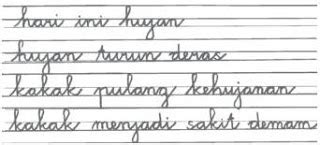 hari ini hujan
hujan turun deras
kakak pulang kehujanan
kakak menjadi sakit demam